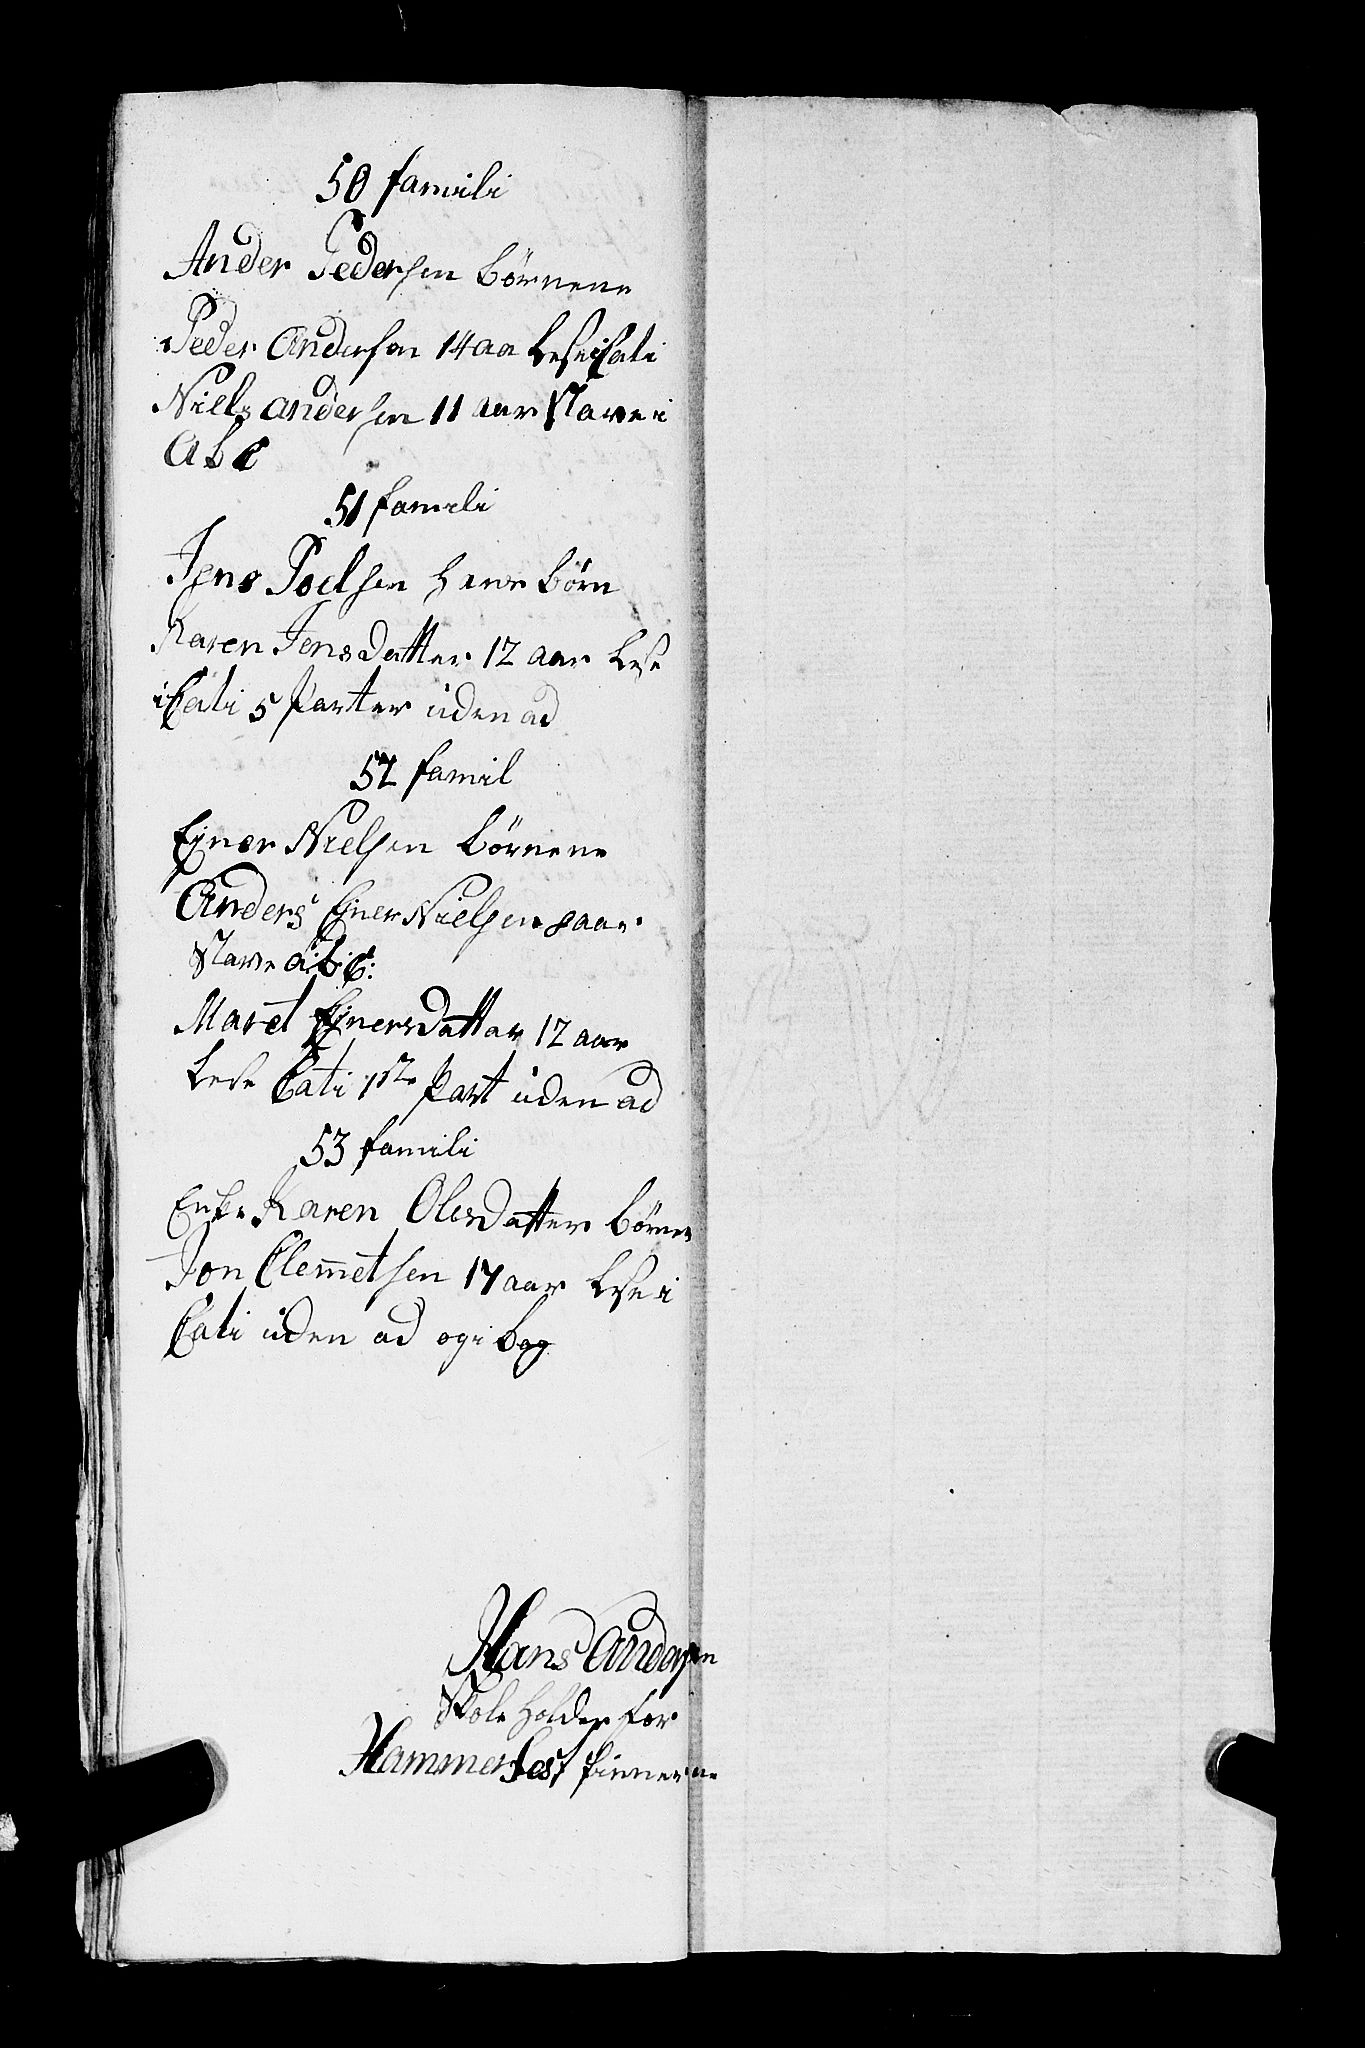 50 famili
Ander Pedersen börnene
Peder Andersen 14 aa Lese i Cati
Niels andersen 11 aar Stave i
Abc
51 famili
Jens Poelsen hans börn
Karen Jensdatter 12 aar Lese
i Cati 5 Parter uden ad
52 famil
Ejner Nielsen börnene
Anders Ejner Nielsen 8 aar
Stave a:b:c:
Maret Ejnersdatter 12 aar
Lese Cati 1ste Part uden ad
53 famili
Enke Karen Olesdatter börne
Jon Clemetsen 17 aar Lese i
Cati uden ad og i bog
Hans Andersen
Skole holder for
Hammerfest finnerne